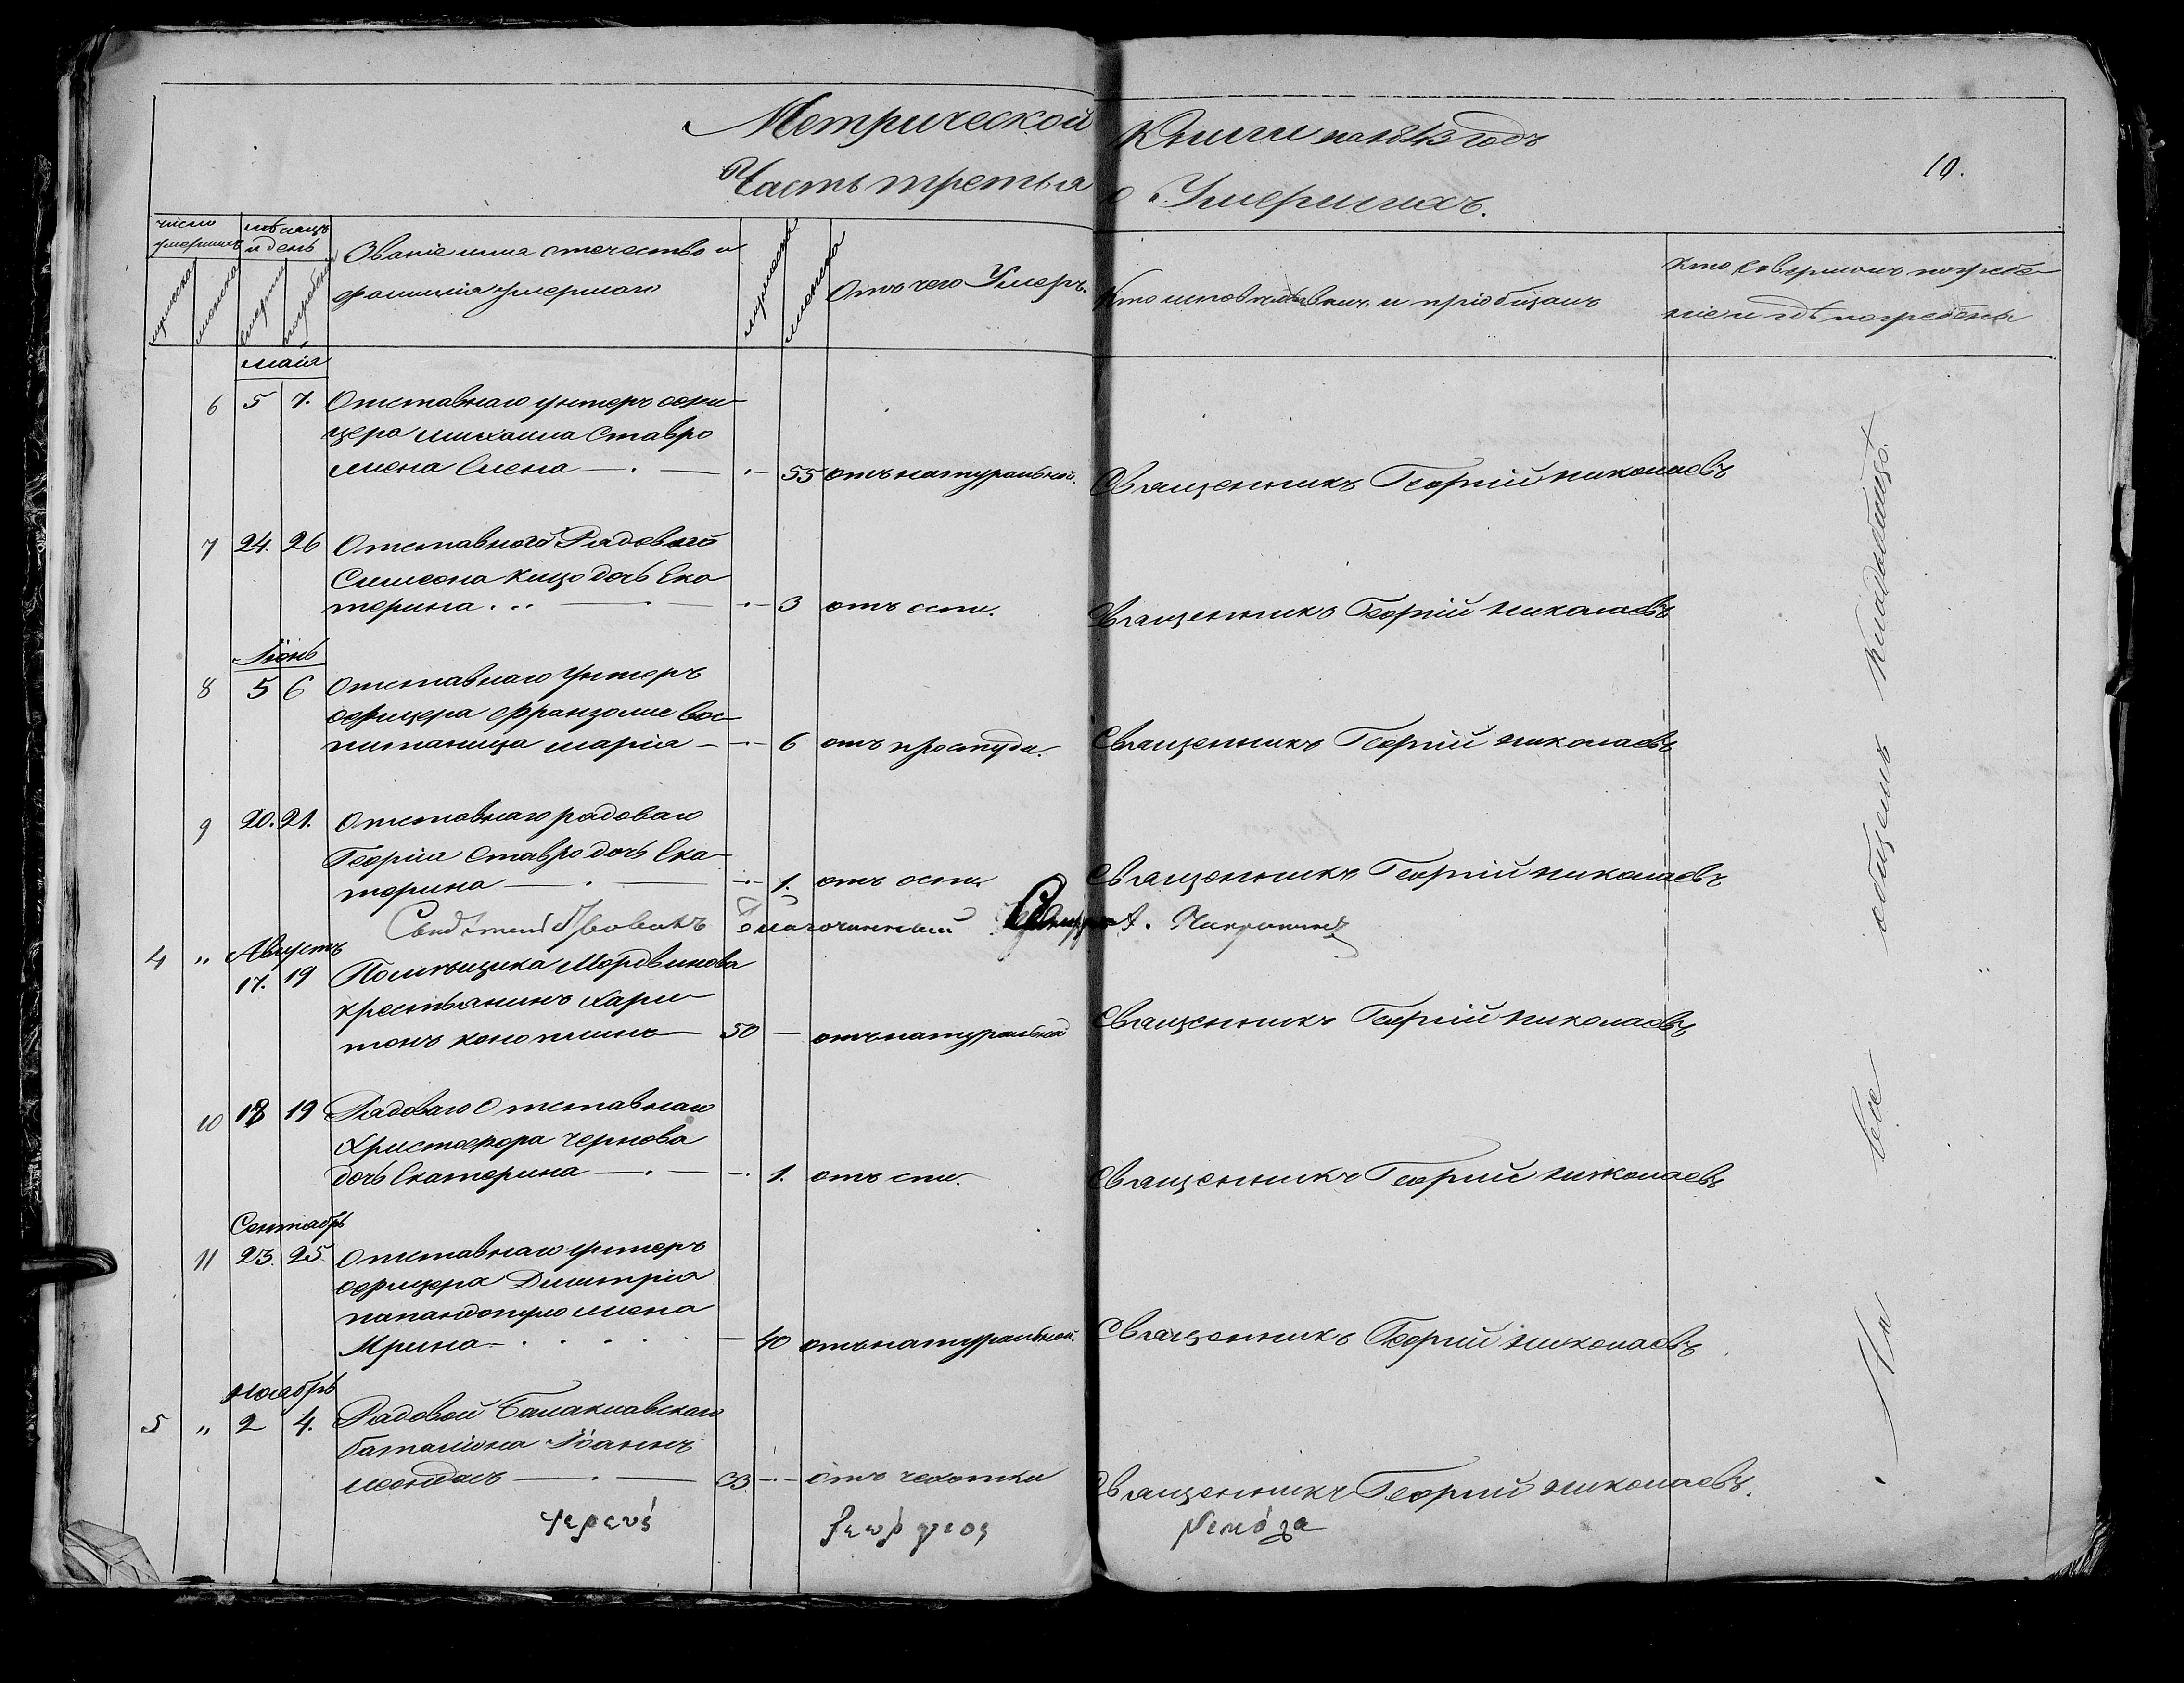 Метрической Книги на 1843 годъ
10.
Часть третья о Умершихъ.
число умершихъ
мѣсяцъ и день
Званіе имя отечество и фамилія умершаго
Отъ чего Умеръ.
Кто исповѣдывалъ и пріобщалъ
кто совершалъ погребеніе и гдѣ погребены
мужеска
женска
смерти
погребенія
мужеска
женска
маія
6 5 7. Отставнаго унтеръ офи
цера михаила Ставро
жена Елена — 55 отъ натуральной. Священникъ Георгій николаевъ
7 24. 26 Отставного Рядового
Симеона кицо дочь Ека
терина — 3 отъ оспи. Священникъ Георгій николаевъ
Іюнь
8 5 6 Отставнаго Унтеръ
офицера Францоме вос
питаница марія — 6 отъ простуди. Священникъ Георгій николаевъ
9 20. 21. Отставнаго рядоваго
Георгія Ставро дочь Ека
терина — 1. отъ оспи Священникъ Георгій николаевъ
Свидѣтельствовалъ Благочинный
Августъ
4 " 17. 19 Помѣщика Мордвинова
крестьянинъ Хари
тонъ 50 — отъ натуральной Священникъ Георгій николаевъ
10 18 19 Рядоваго Отставнаго
Христофора Чернова
дочь Екатерина — 1. отъ спи. Священникъ Георгій николаевъ
Сентябрь
11 23. 25 Отставнаго унтеръ
офицера Димитрія
папандопуло жена
Ирина — 40 отъ натуральной. Священникъ Георгій николаевъ
Ноябрь
5 " 2 4. Рядовой Балаклавскаго
баталіона Іоаннъ
33 — отъ чехотки Священникъ Георгій николаевъ.
ἱερεύς Γεώργιος
На все общемъ кладбищѣ